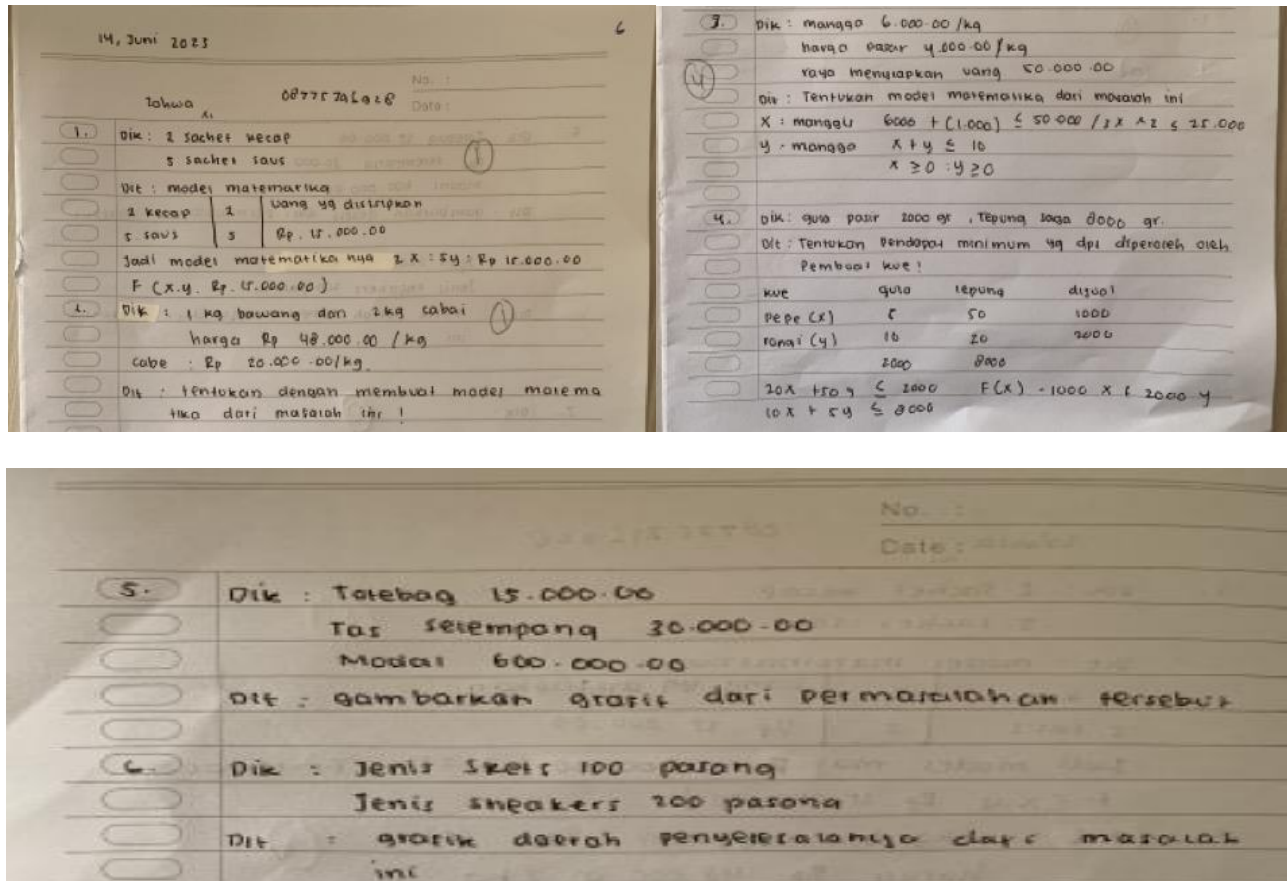 14, Juni 2023
6
No. :
Zahwa
Date :
1. Dik : 2 sachet kecap
5 sachet saus
1
Dit : model matematika
2 kecap 2 uang yg disiapkan
5 saus 5 Rp. 15.000.00
Jadi model matematika nya 2 x : 5y : Rp 15.000.00
F (x.y. Rp. 15.000.00)
2. Dik : 1 kg bawang dan 2 kg cabai
1
harga Rp 48.000.00 / kg
cabe : Rp 20.000.00/kg
Dit : tentukan dengan membuat model matema
tika dari masalah ini !
3. Dik : mangga 6.000.00 /kg
harga pasar 4.000.00/kg
4
raya menyiapkan uang 50.000.00
Dit : Tentukan model matematika dari masalah ini
X : manggis 6000 + (1.000) ≤ 50 000 / ≤ 25.000
y - mangga x + y ≤ 10
x ≥ 0 : y ≥ 0
4. Dik : gula pasir 2000 gr , Tepung 8000 gr.
Dit : Tentukan Pendapat minimum yg dpt diperoleh oleh
Pembuat kue !
kue gula tepung dijual
pepe (x) 5 50 1000
rangi (y) 10 20 2000
2000 8000
20x + 50 y ≤ 2000 F(x) - 1000 x 2000 y
10 x + 5y ≤ 8000
No. :
Date :
5. Dik : Totebag 15.000.00
Tas selempang 30.000-00
Modal 600.000.00
Dit : gambarkan grafik dari permasalahan tersebut
6. Dik : Jenis 100 pasang
Jenis sneakers 200 pasang
Dit : grafik daerah penyelesaianya dari masalah
ini